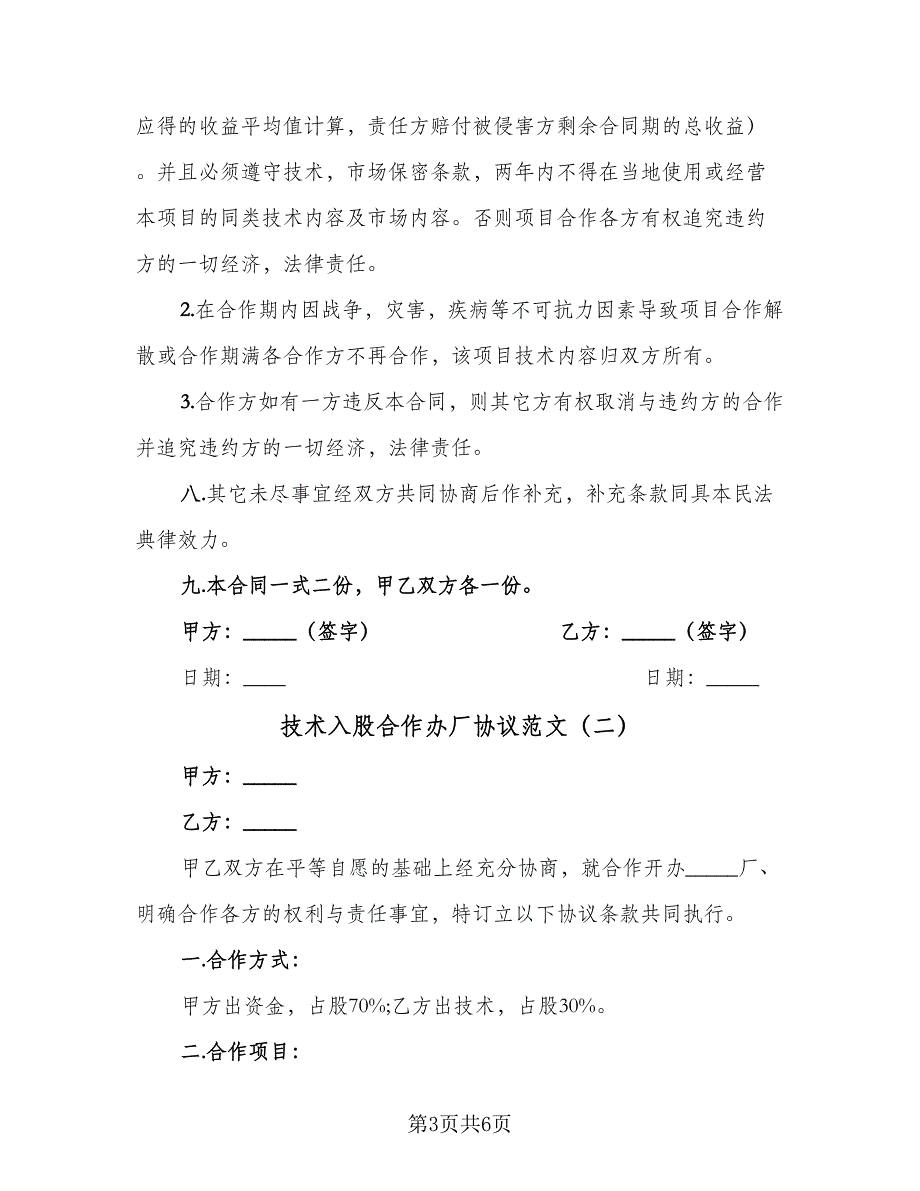 应得的收益平均值计算，责任方赔付被侵害方剩余合同期的总收益）
。并且必须遵守技术，市场保密条款，两年内不得在当地使用或经营
本项目的同类技术内容及市场内容。否则项目合作各方有权追究违约
方的一切经济，法律责任。
2.在合作期内因战争，灾害，疾病等不可抗力因素导致项目合作解
散或合作期满各合作方不再合作，该项目技术内容归双方所有。
3.合作方如有一方违反本合同，则其它方有权取消与违约方的合作
并追究违约方的一切经济，法律责任。
八.其它未尽事宜经双方共同协商后作补充，补充条款同具本民法
典律效力。
九.本合同一式二份，甲乙双方各一份。
甲方：_____（签字） 乙方：_____（签字）
日期：____ 日期：_____
技术入股合作办厂协议范文（二）
甲方：_____
乙方：_____
甲乙双方在平等自愿的基础上经充分协商，就合作开办_____厂、
明确合作各方的权利与责任事宜，特订立以下协议条款共同执行。
一.合作方式：
甲方出资金，占股70%;乙方出技术，占股30%。
二.合作项目：
第3页共6页